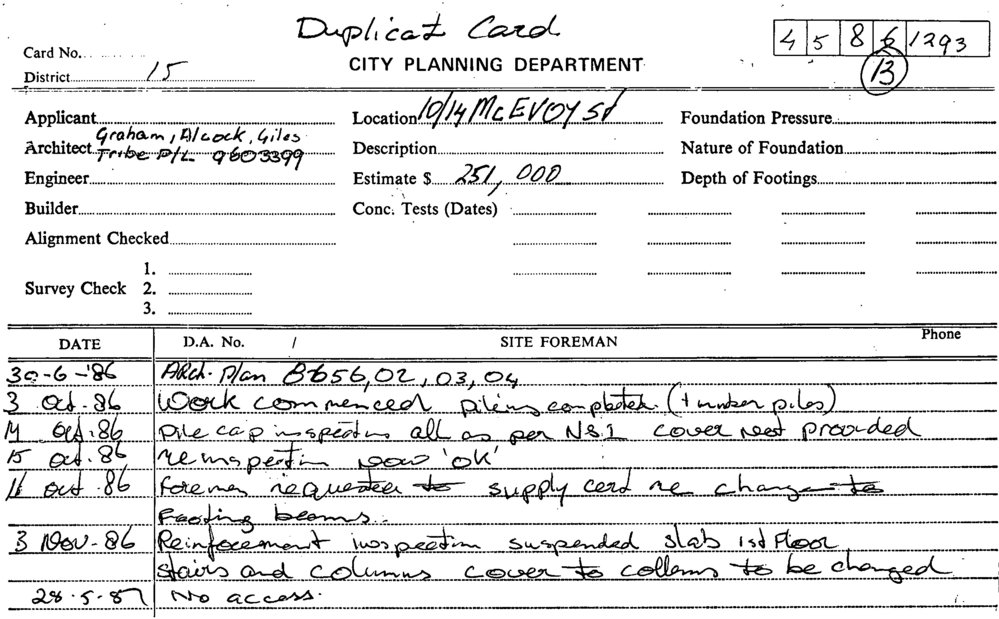 Duplicat Card
4 5 8 6 1293
13
Card No.
CITY PLANNING DEPARTMENT
District 15
Applicant
Location 10/14 McEVOY St
Foundation Pressure
Graham, Alcock, Giles
Architect Tribe P/L 9603399
Description
Nature of Foundation
Engineer
Estimate $ 251,000
Depth of Footings
Builder
Conc. Tests (Dates)
Alignment Checked
1.
Survey Check 2.
3.
DATE D.A. No. / SITE FOREMAN Phone
30-6-'86 ARch. Plan 8656,02,03,04
3 Oct. 86 Work commenced piling completed. (timber piles)
14 Oct. 86 pile cap inspection all as per N.S.I cover not provided
15 Oct. 86 reinspection now 'OK'
16 Oct. 86 foreman requested to supply cert re change to
Footing beams.
3 Nov-86 Reinforcement inspection suspended slab 1st Floor
stairs and columns cover to collems to be changed
28.5.87 No access.